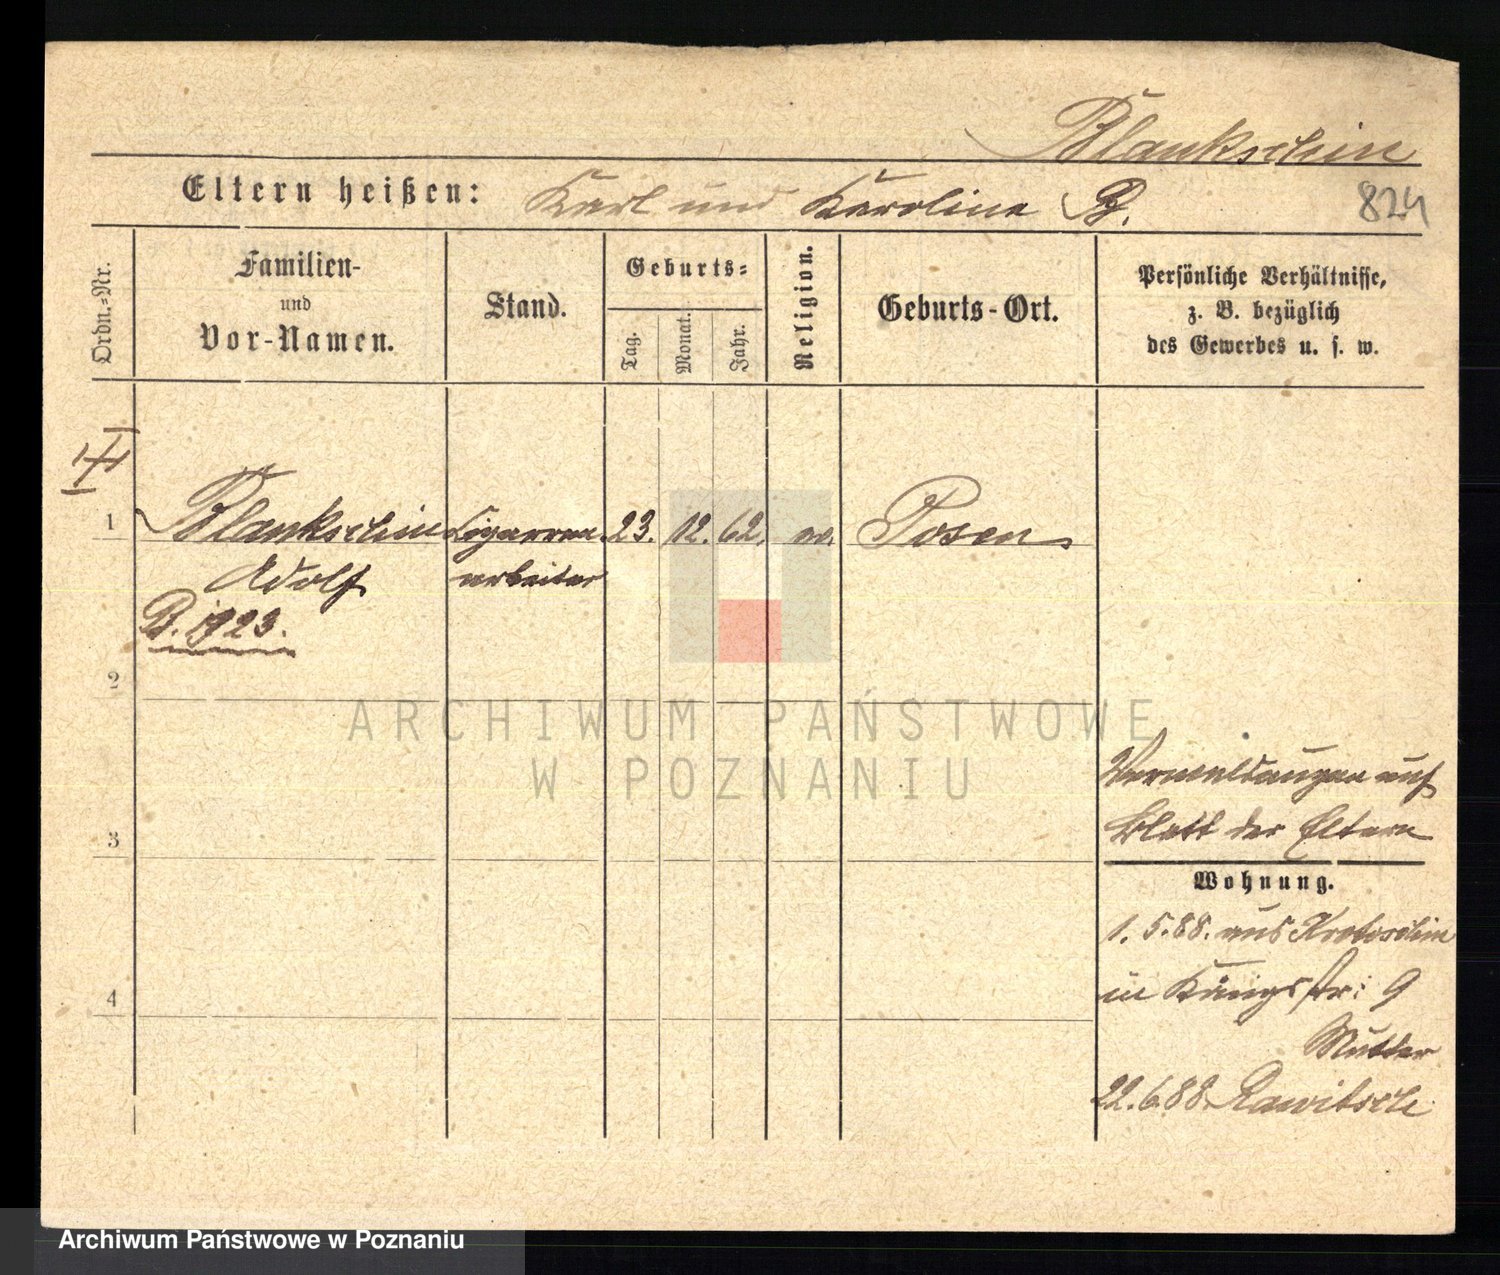 Blankschin
Eltern heißen: Karl und Karoline B.
824
Ordn.-Nr.
Familien-
und
Vor-Namen.
Stand.
Geburts-
Tag.
Monat.
Jahr.
Religion.
Geburts-Ort.
Persönliche Verhältnisse,
z. B. bezüglich
des Gewerbes u. s. w.
1 Blankschin Cigarren- 23. 12. 62. ev. Posen
Adolf arbeiter
B. 1923.
2
ARCHIWUM PAŃSTWOWE
W POZNANIU
auf
3 Blatt der Eltern
Wohnung.
1. 5. 88. aus Krotoschin
4 in Königsstr: 9
Mutter
22. 6. 88 Rawitsch
Archiwum Państwowe w Poznaniu